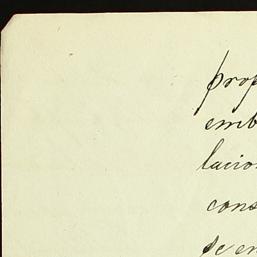 prop
emb
lacio
cons
se en